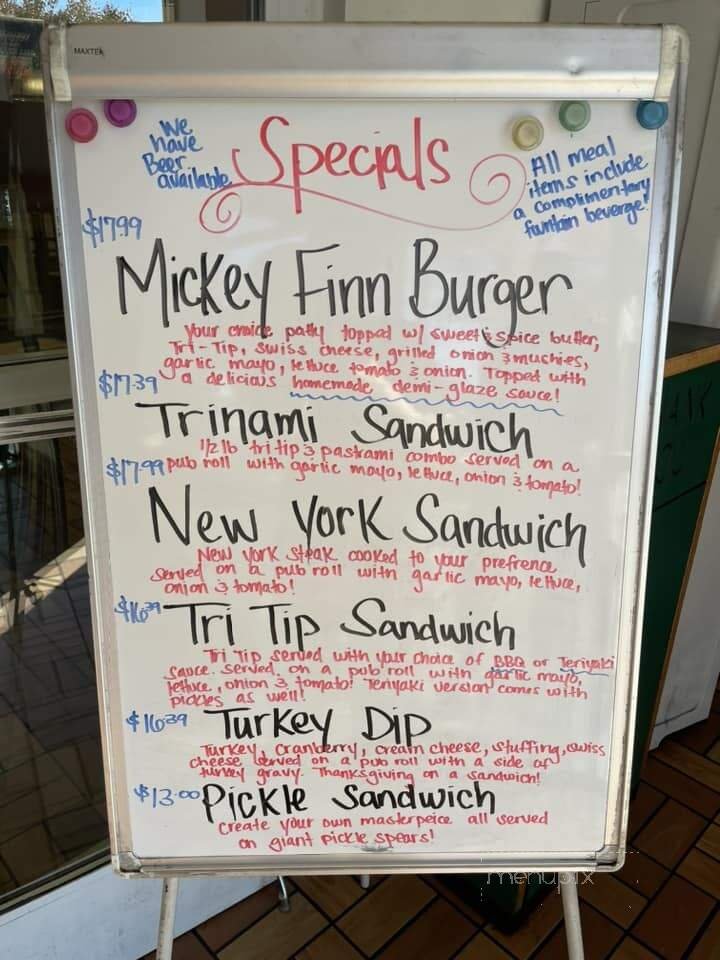 MAXTEK
We
have
Beer
available
Specials
All meal
items include
a complimentary
funtain beverge!
$17.99
Mickey Finn Burger
Your choice patty topped w/ sweet & spice butter,
Tri-Tip, swiss cheese, grilled onion & mushies,
garlic mayo, lettuce tomato & onion. Topped with
a delicious homemade demi-glaze sauce!
$17.39
Trinami Sandwich
1/2 lb tri tip & pastrami combo served on a
pub roll with garlic mayo, lettuce, onion & tomato!
$17.99
New York Sandwich
New York steak cooked to your prefrence
served on a pub roll with garlic mayo, lettuce,
onion & tomato!
$16.39
Tri Tip Sandwich
Tri Tip served with your choice of BBQ or Teriyaki
sauce. served on a pub roll with garlic mayo,
lettuce, onion & tomato! Teriyaki version comes with
pickles as well!
$16.39
Turkey Dip
Turkey, cranberry, cream cheese, stuffing, swiss
cheese served on a pub roll with a side of
turkey gravy. Thanksgiving on a sandwich!
$13.00
Pickle Sandwich
Create your own masterpeice all served
on giant pickle spears!
menupix